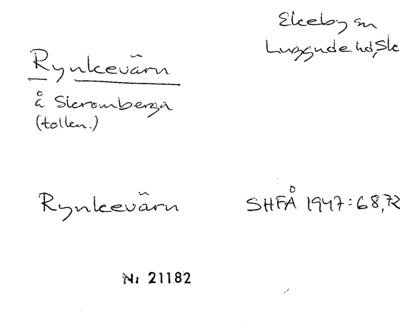 Ekeby sn
Luggude hd, Sk
Rynkevärn
å Skromberga
(tolkn.)
Rynkevärn SHFÅ 1947:68,72
Nr 21182